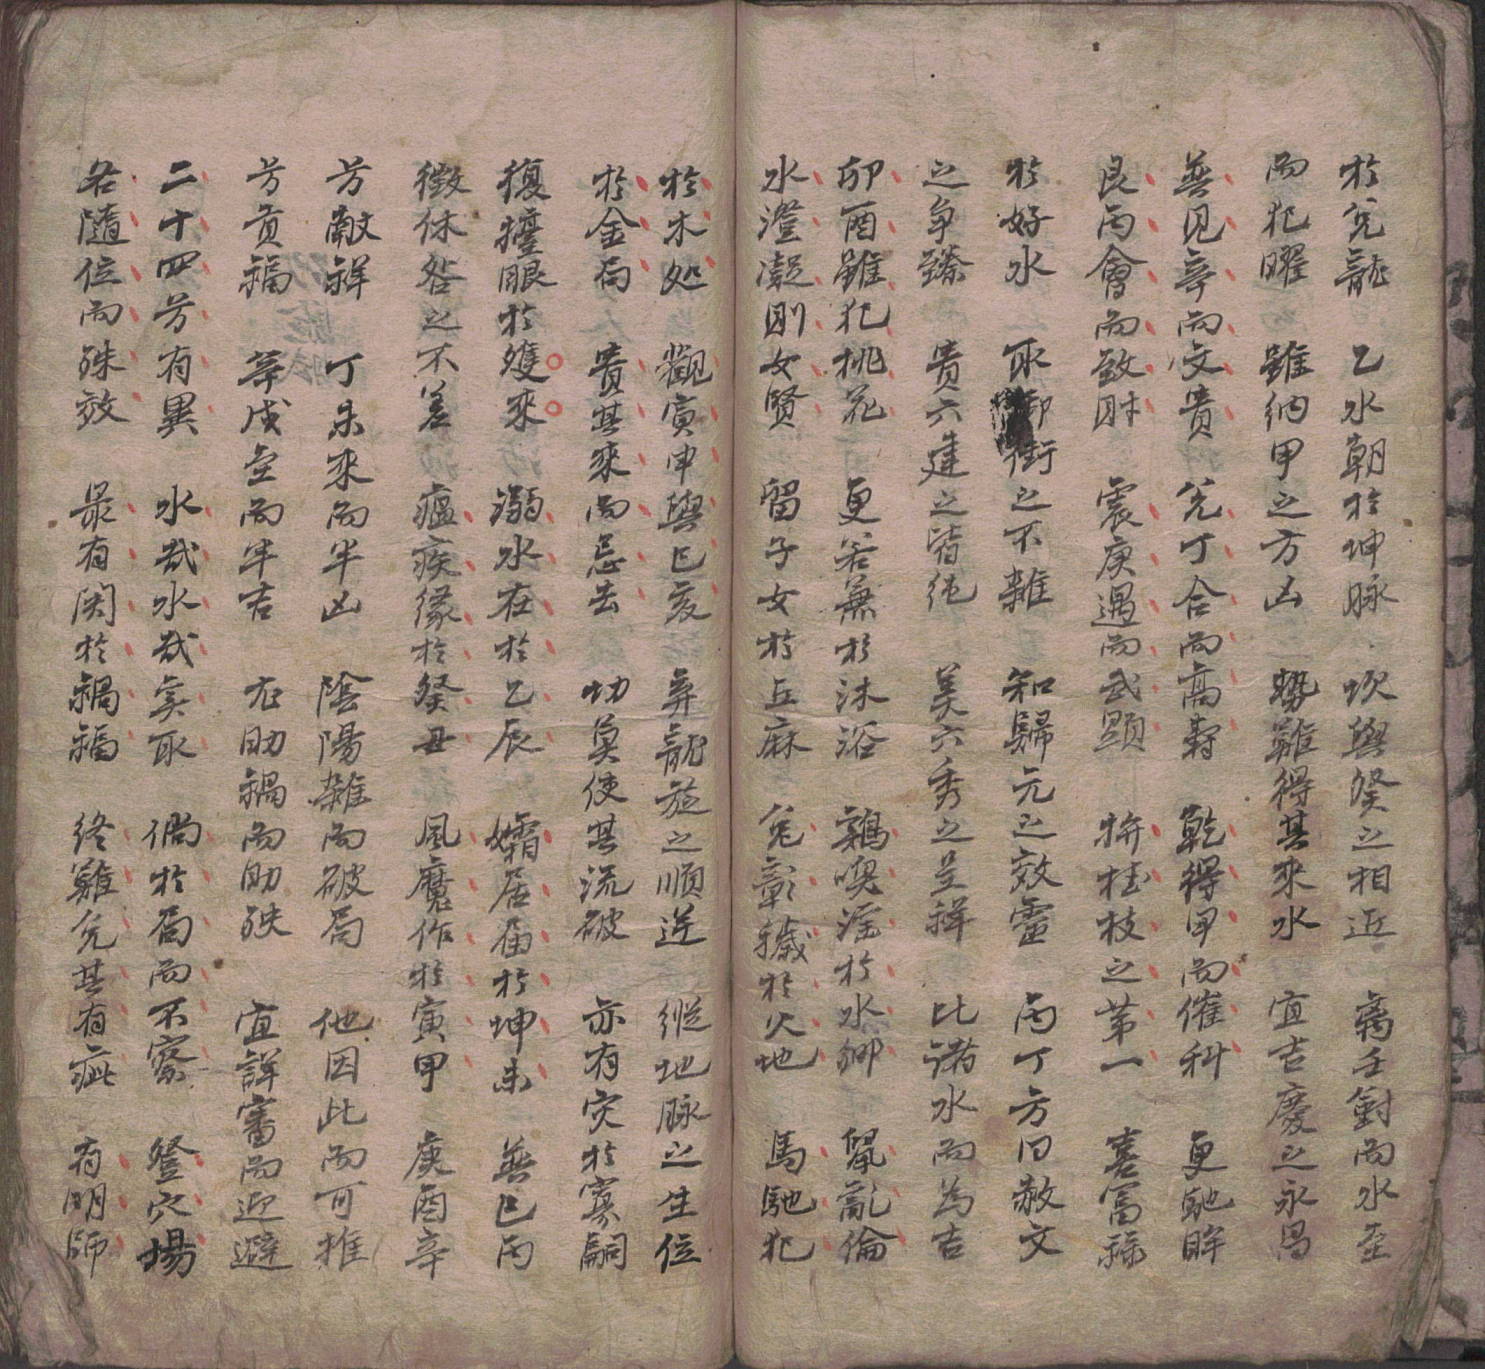 於兌龍 乙水朝於坤脉 坎與癸之相近 离壬對而水至
而犯曜 雖納甲之方凶 勢難得其來水 宜吉慶之永昌
巽见辛而文貴 兌丁合而高壽 乾得甲而催科 更馳眸
艮丙會而致財 震庚遇而武顯 骿枝之第一 喜富
於好水 取御街之不雜 知歸元之效靈 丙丁方曰赦文
之争臻 貴六建之皆純 美六秀之呈祥 比諸水而為吉
卯酉雖犯桃花 更若無於沐浴 鶏喫淫於水鄉 鼠亂倫
水澄凝則女賢 留子女於丘麻 兔彰穢於火地 馬馳犯
於木处 觀寅申與巳亥 弄龍旋之順逆 縱地脉之生位
於金局 貴其來而忌去 切莫使其流破 亦有灾於寡嗣
復擡眼於雙來 溺水在於乙辰 孀居屆於坤未 無巳丙
徵休咎之不差 瘟疾缘於癸丑 風魔作於寅甲 庚酉辛
方献祥 丁未來而半凶 陰陽雜而破局 他因此而可推
方贡福 等戌至而半吉 左助禍而助殃 宜詳審而迎避
二十四方有異 水哉水哉奚取 倘於局而不察 登穴場
各隨位而殊效 最有関於禍福 終難免其有疵 有明師